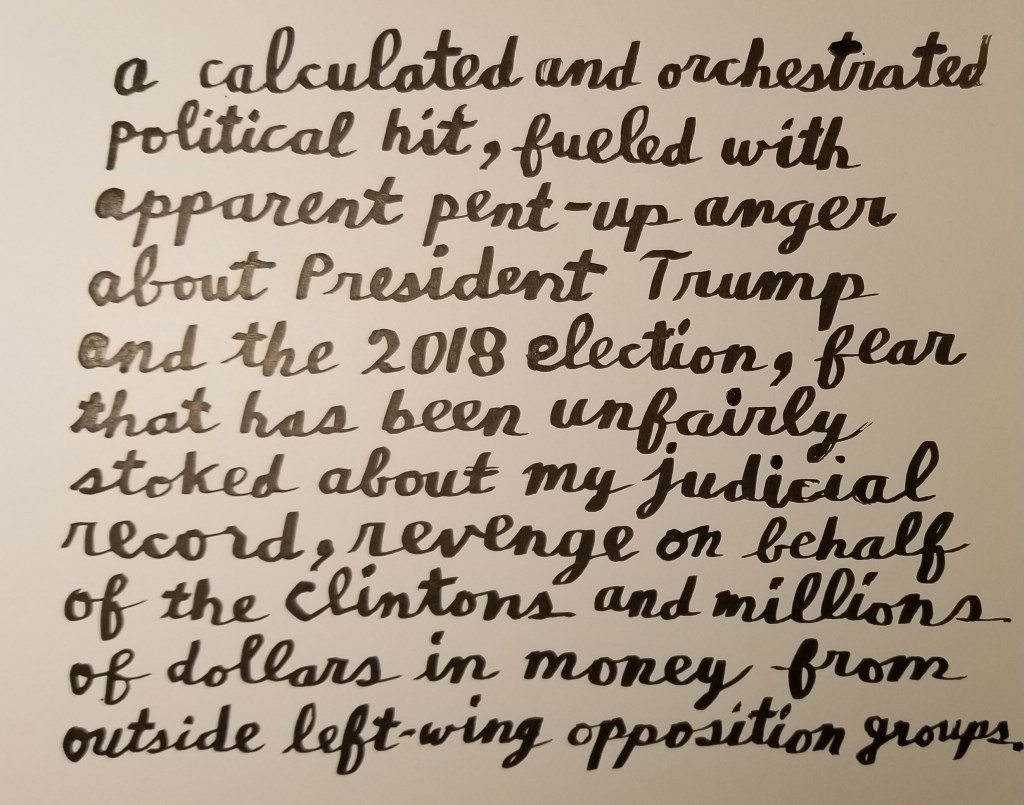 a calculated and orchestrated
political hit, fueled with
apparent pent-up anger
about President Trump
and the 2018 election, fear
that has been unfairly
stoked about my judicial
record, revenge on behalf
of the Clintons and millions
of dollars in money from
outside left-wing opposition groups.